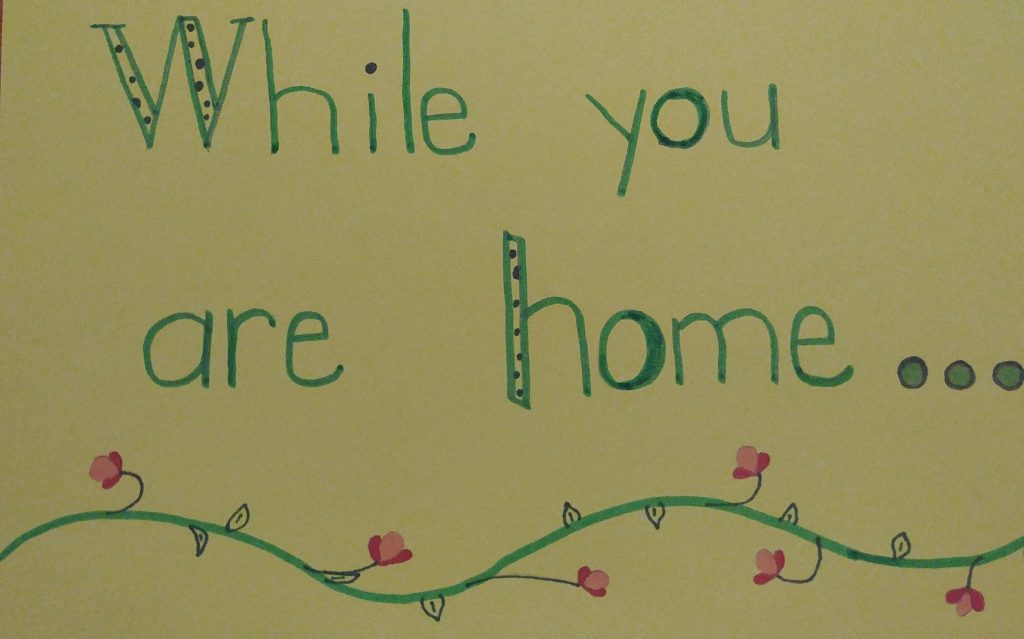 While you
are home...